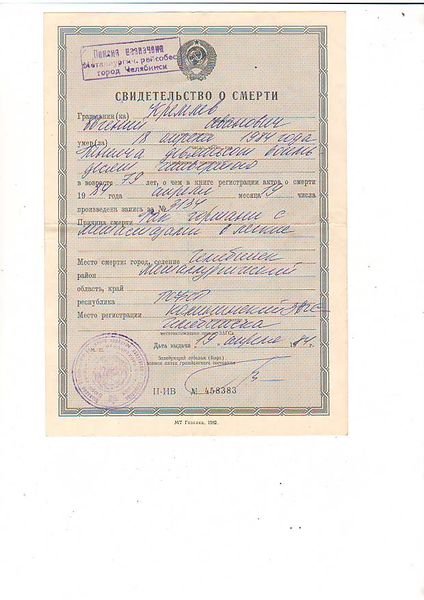 Пенсия назначена
Металлургич. райсобес
город Челябинск
СВИДЕТЕЛЬСТВО О СМЕРТИ
Гражданин(ка) Кремлев
Иванович
умер(ла) 18 апреля 1984 года
в возрасте 79 лет, о чем в книге регистрации актов о смерти
1984 апреля месяца 19 числа
произведена запись за №
Причина смерти Рак гортани с
метастазами в легкие
Место смерти: город, селение Челябинск
район Металлургический
область, край
республика РСФСР
Место регистрации Калининский ЗАГС
Челябинска
Дата выдачи 19 апреля 1984 г.
Заведующий отделом (бюро)
записи актов гражданского состояния
М. П.
II-ИВ № 458383
МТ Гознака. 1982.